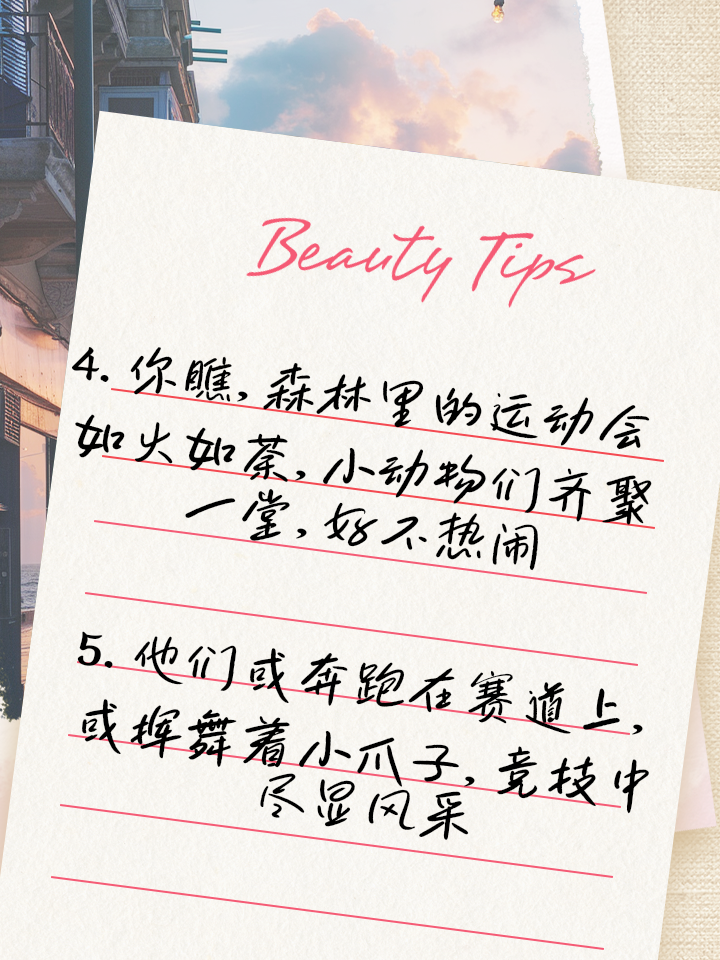 Beauty Tips
4. 你瞧,森林里的运动会
如火如荼,小动物们齐聚
一堂,好不热闹
5. 他们或奔跑在赛道上,
或挥舞着小爪子,竞技中
尽显风采